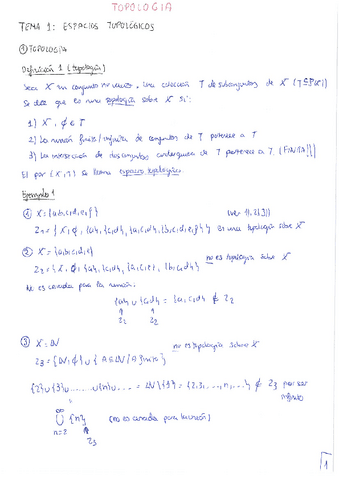 TOPOLOGÍA
TEMA 1: ESPACIOS TOPOLÓGICOS
① TOPOLOGÍA
Definición 1 (topología)
Sea X un conjunto no vacío. Una colección T de subconjuntos de X (T⊆P(X))
Se dice que es una topología sobre X si:
1) X, ∅ ∈ T
2) La unión finita/infinita de conjuntos de T pertenece a T
3) La intersección de dos conjuntos cualesquiera de T pertenece a T. (FINITA!!)
El par (X,T) se llama espacio topológico.
Ejemplo 1
① X={a,b,c,d,e,f} (ver 1),2),3))
T₁={X,∅,{a},{c,d},{a,c,d},{b,c,d,e,f}} es una topología sobre X
② X={a,b,c,d,e}
T₂={X,∅,{a},{c,d},{a,c,e},{b,c,d}} no es topología sobre X
No es cerrada para la unión:
{a}∪{c,d}={a,c,d}∉T₂
③ X=ℕ no es topología sobre X
T₃={ℕ,∅}∪{A⊆ℕ/A finito}
{2}∪{3}∪...∪{n}∪...=ℕ\{1}={2,3,...,n,...}∉T₃ por ser
infinito
⋃ {n} (no es cerrada para la unión)
n=2
T₃
1